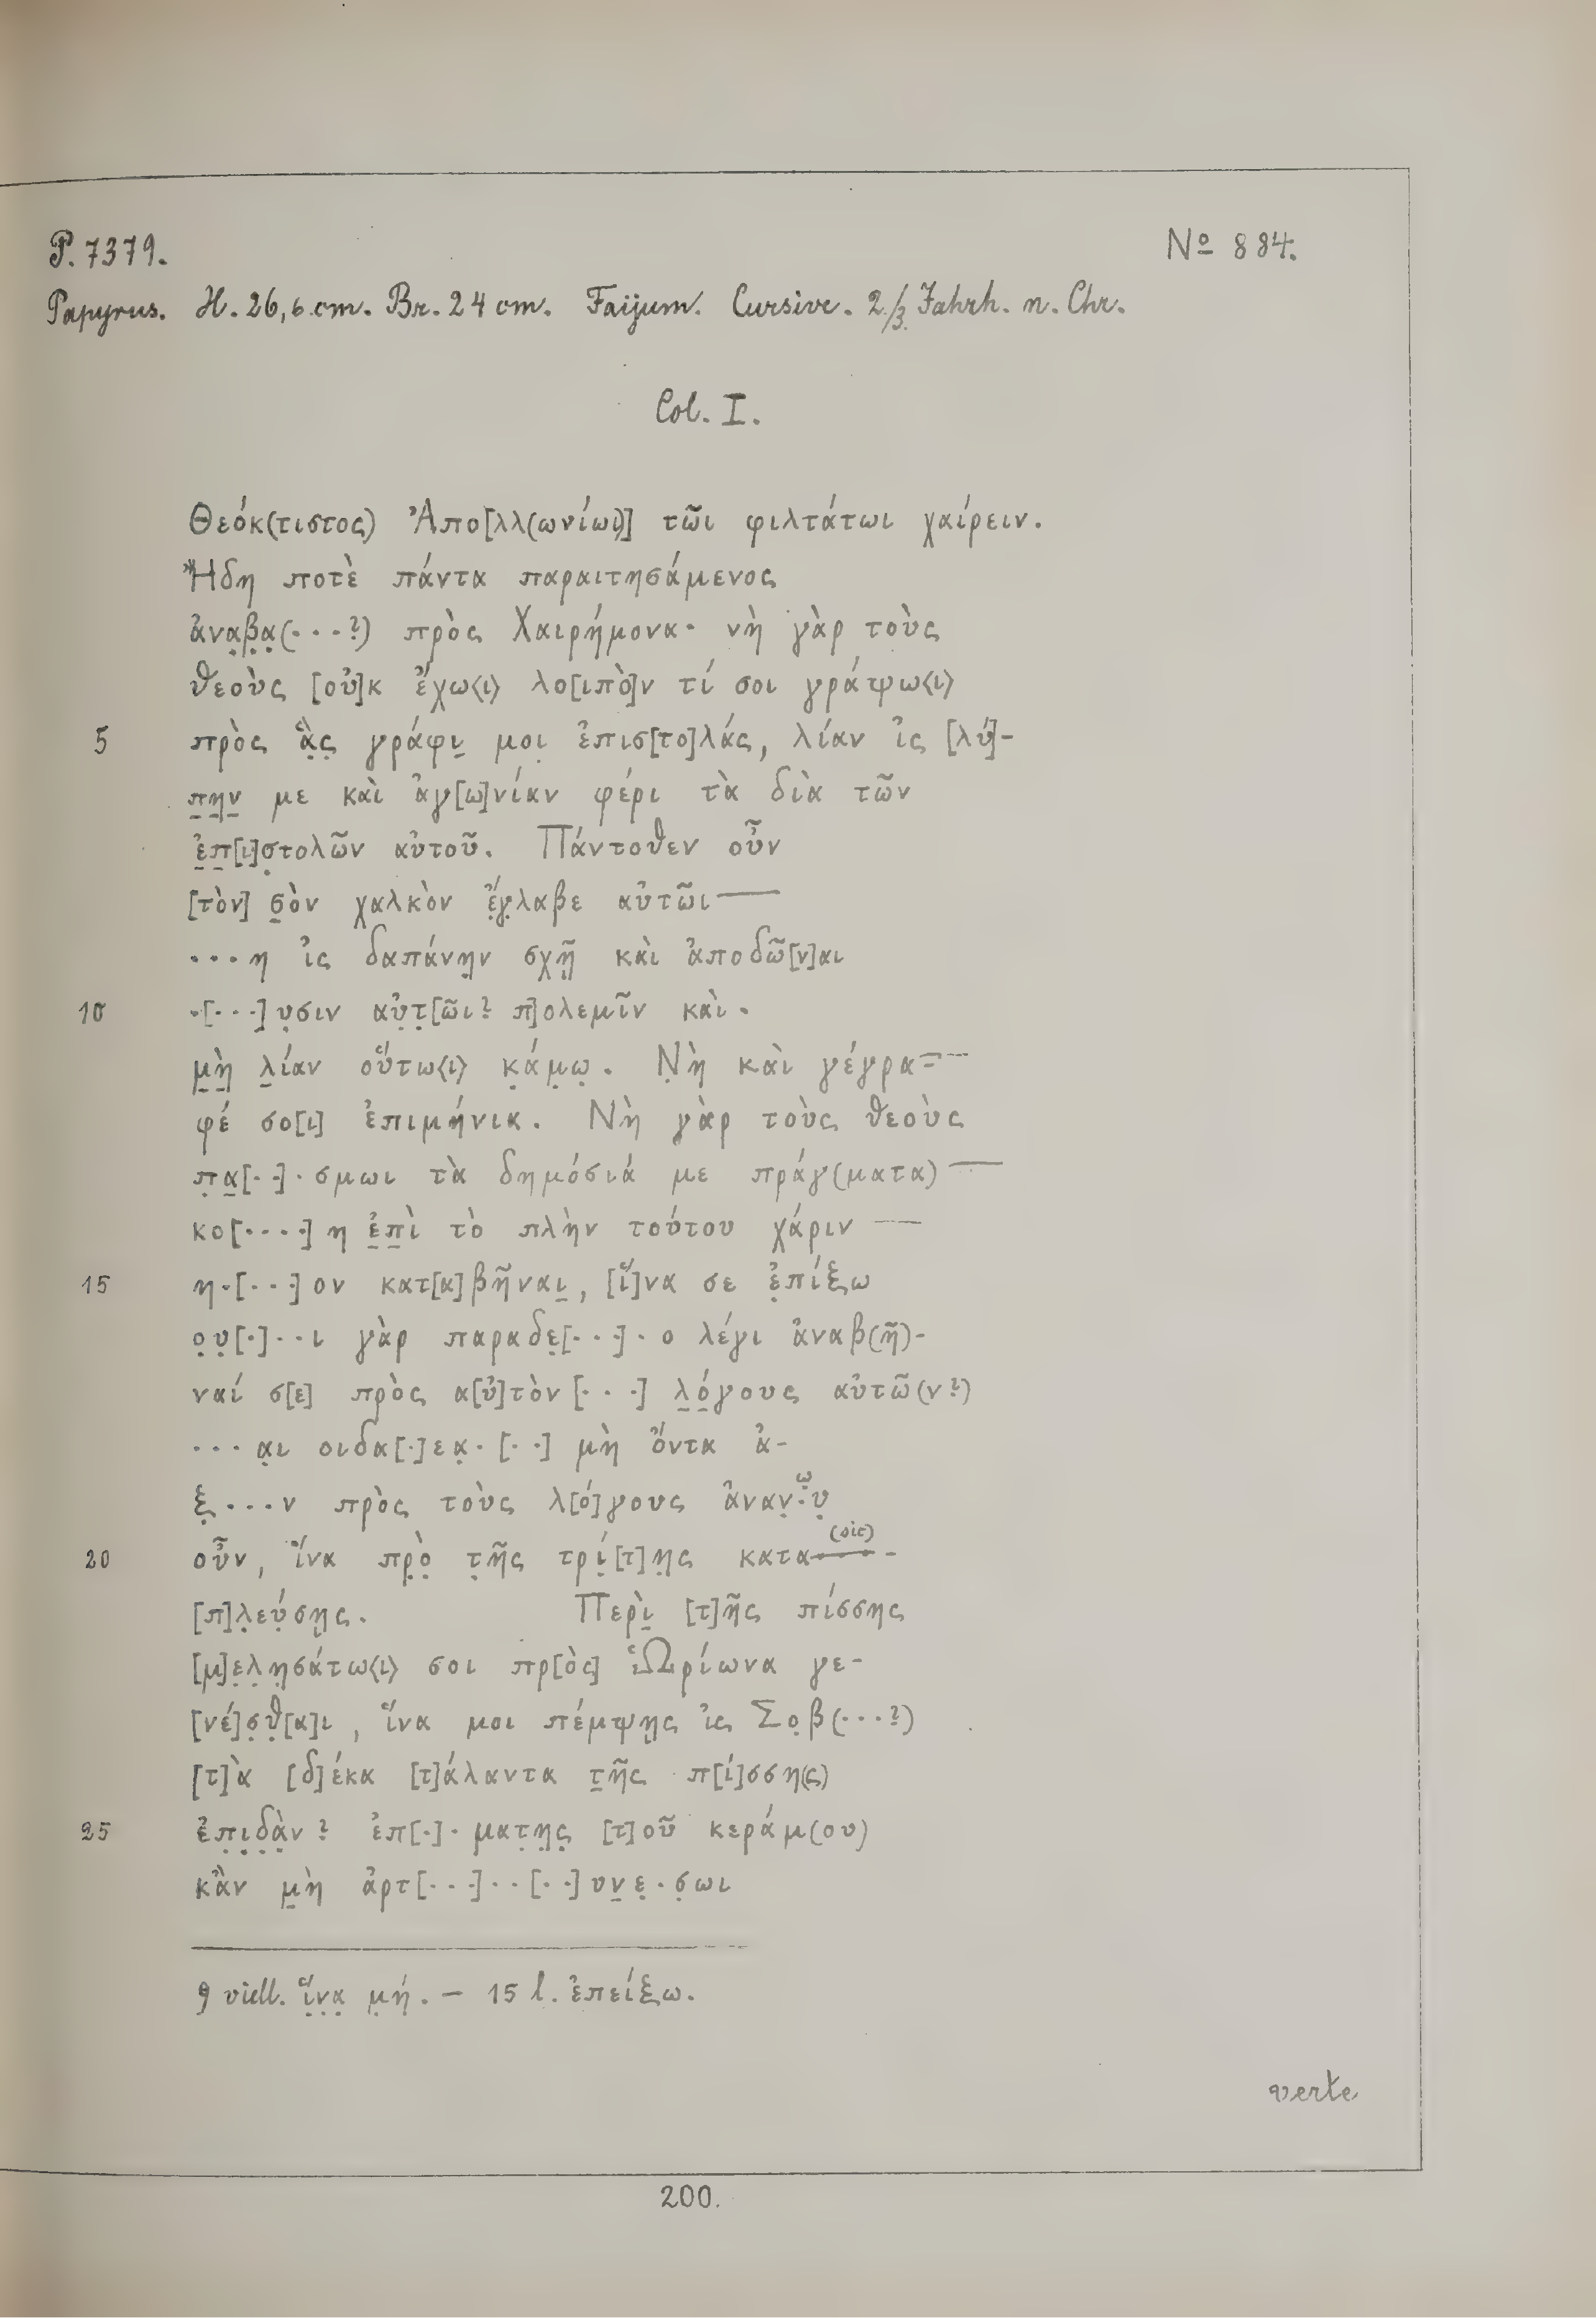 P. 7379.
Nº 884.
Papyrus. H. 26,6 cm. Br. 24 cm. Faijum. Cursive. 2/3. Jahrh. n. Chr.
Col. I.
Θεόκ(τιστος) Ἀπο[λλ(ωνίωι)] τῶι φιλτάτωι χαίρειν.
Ἤδη ποτὲ πάντα παραιτησάμενος
ἀνα̣β̣α̣(···?) πρὸς Χαιρήμονα· νὴ γὰρ τοὺς
θεοὺς [οὐ]κ ἔχω⟨ι⟩ λο[ιπὸ]ν τί σοι γράψω⟨ι⟩
5 πρὸς ἃ̣ς̣ γράφι̣ μοι̣ ἐπισ[το]λάς, λίαν ἰς [λύ]-
π̣η̣ν̣ με καὶ ἀγ[ω]νίαν φέρι τὰ διὰ τῶν
ἐ̣π̣[ι]σ̣τολῶν αὐτοῦ. Πάντοθεν οὖν
[τὸν] σ̣ὸν χαλκὸν ἔ̣γ̣λαβε αὐτῶι—
···η ἰς δαπάνη̣ν σχῇ̣ καὶ ἀποδῶ[ν]αι
10 ·[···]υ̣σιν αὐ̣τ̣[ῶι? π]ολεμῖν καὶ·
μ̣ὴ̣ λ̣ίαν οὕτω⟨ι⟩ κ̣άμ̣ω̣. Ν̣ὴ καὶ γέγρα=—
φέ σο[ι] ἐπιμήνικ. Νὴ γὰρ τοὺς θεοὺς
π̣α̣[··]·σμωι τὰ δημόσιά με πράγ(ματα)—
κο[····]η ἐ̣π̣ὶ τὸ πλὴν τούτου χάριν—
15 η·[···]ον κατ[α]βῆναι̣, [ἵ]να σε ἐ̣πίξω
ο̣υ̣[·]··ι γὰρ παραδε̣[···]·ο λέγι ἀναβ(ῆ)-
ναί σ[ε] πρὸς α[ὐ]τὸν[···] λ̣ό̣γους αὐτῶ(ν?)
···α̣ι οιδα[·]εα̣·[··] μὴ ὄντα ἀ-
ξ̣···ν πρὸς τοὺς λ[ό]γους ἀναν̣·ὠυ̣
20 οὖν, ἵνα πρ̣ὸ̣ τ̣ῆς τρί̣[τ]η̣ς κατα—(sic)-
[π]λ̣εύ̣σῃ̣ς. Περὶ̣ [τ]ῆς πίσσης
[μ]ε̣λ̣η̣σάτω⟨ι⟩ σοι πρ[ὸς] Ὡρίωνα γε-
[νέ]σ̣θ̣[α]ι, ἵνα μοι πέμψῃς ἰς Σο̣β(···?)
[τ]ὰ [δ]έκα [τ]άλαντα τ̣ῆς π[ί]σση(ς)
25 ἐ̣π̣ι̣δ̣ὰ̣ν? ἐπ[·]·ματ̣η̣ς̣ [τ]οῦ κεράμ(ου)
κἂν μ̣ὴ ἀρτ[···]··[··]υν̣ε̣·σ̣ωι
9 viell. ἵ̣ν̣α̣ μ̣ή̣. — 15 l. ἐπείξω.
verte
200.